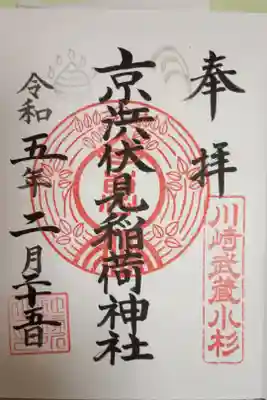 奉拝
川崎武蔵小杉
京浜伏見稲荷神社
令和五年二月十五日